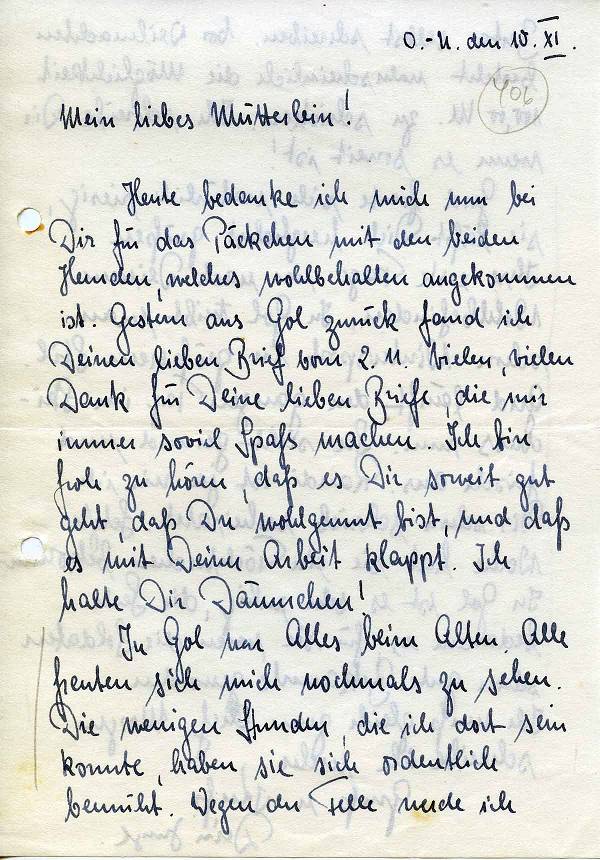 O.-U. den 10. XI.
406
Mein liebes Mütterlein!
Heute bedanke ich mich nun bei
Dir für das Päckchen mit den beiden
Hemden, welches wohlbehalten angekommen
ist. Gestern aus Gol zurück fand ich
Deinen lieben Brief vom 2.11. Vielen, vielen
Dank für Deine lieben Briefe, die mir
immer soviel Spaß machen. Ich bin
froh zu hören, daß es Dir soweit gut
geht, daß Du wohlgemut bist, und daß
es mit Deiner Arbeit klappt. Ich
halte Dir Däumchen!
In Gol war Alles beim Alten. Alle
freuten sich mich nochmals zu sehen.
Die wenigen Stunden, die ich dort sein
konnte, haben sie sich ordentlich
bemüht. Wegen der Felle werde ich